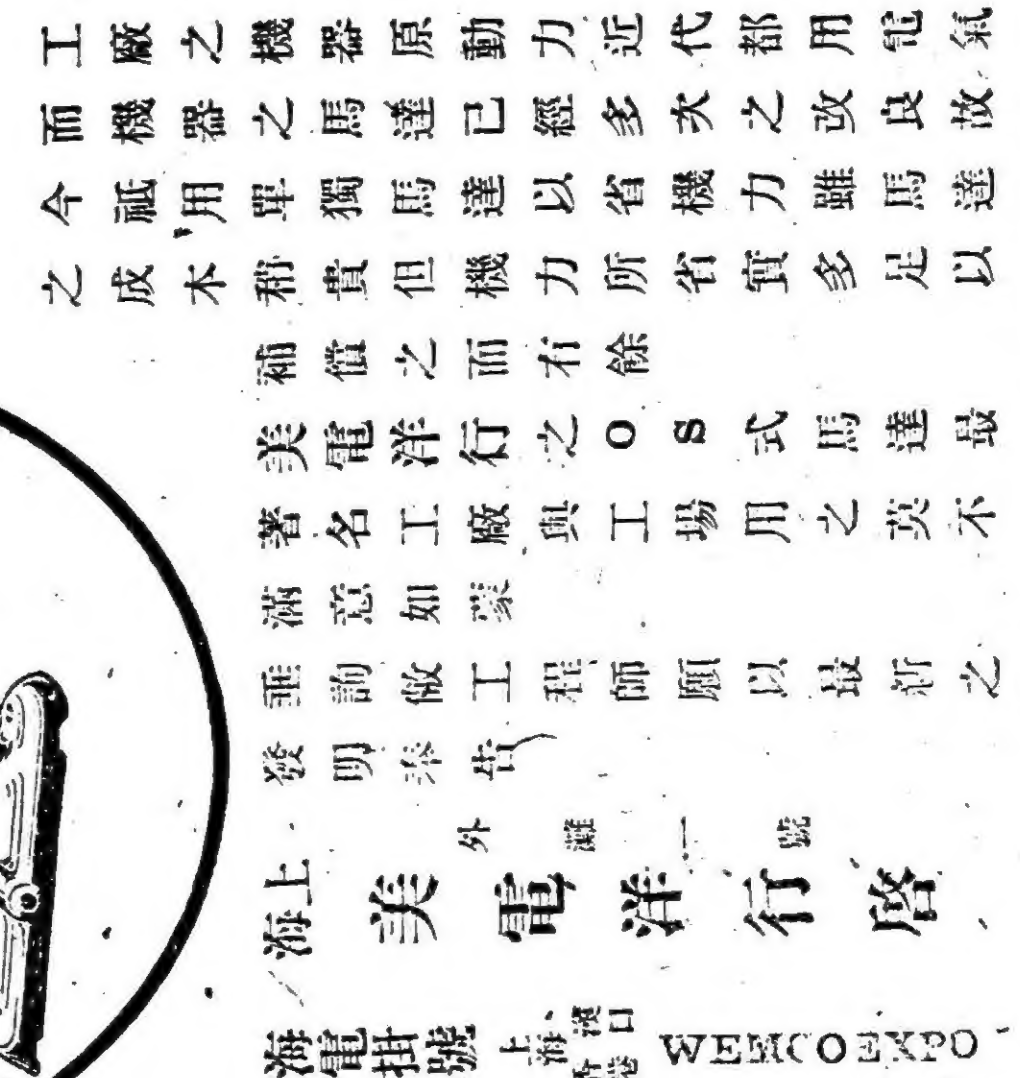 工廠之機器原動力近代都用電氣
而機器之馬達已經多次之改良故
今祗用單獨馬達以省機力雖馬達
之成本稍貴但機力所省實多足以
補償之而有餘
美電洋行之OS式馬達最
著名工廠與工場用之莫不
滿意如蒙
垂詢敝工程師願以最新之
發明奉告
外灘一號
上海 美電洋行啓
海電掛號 上海 漢口 香港 WEMCOEXPO